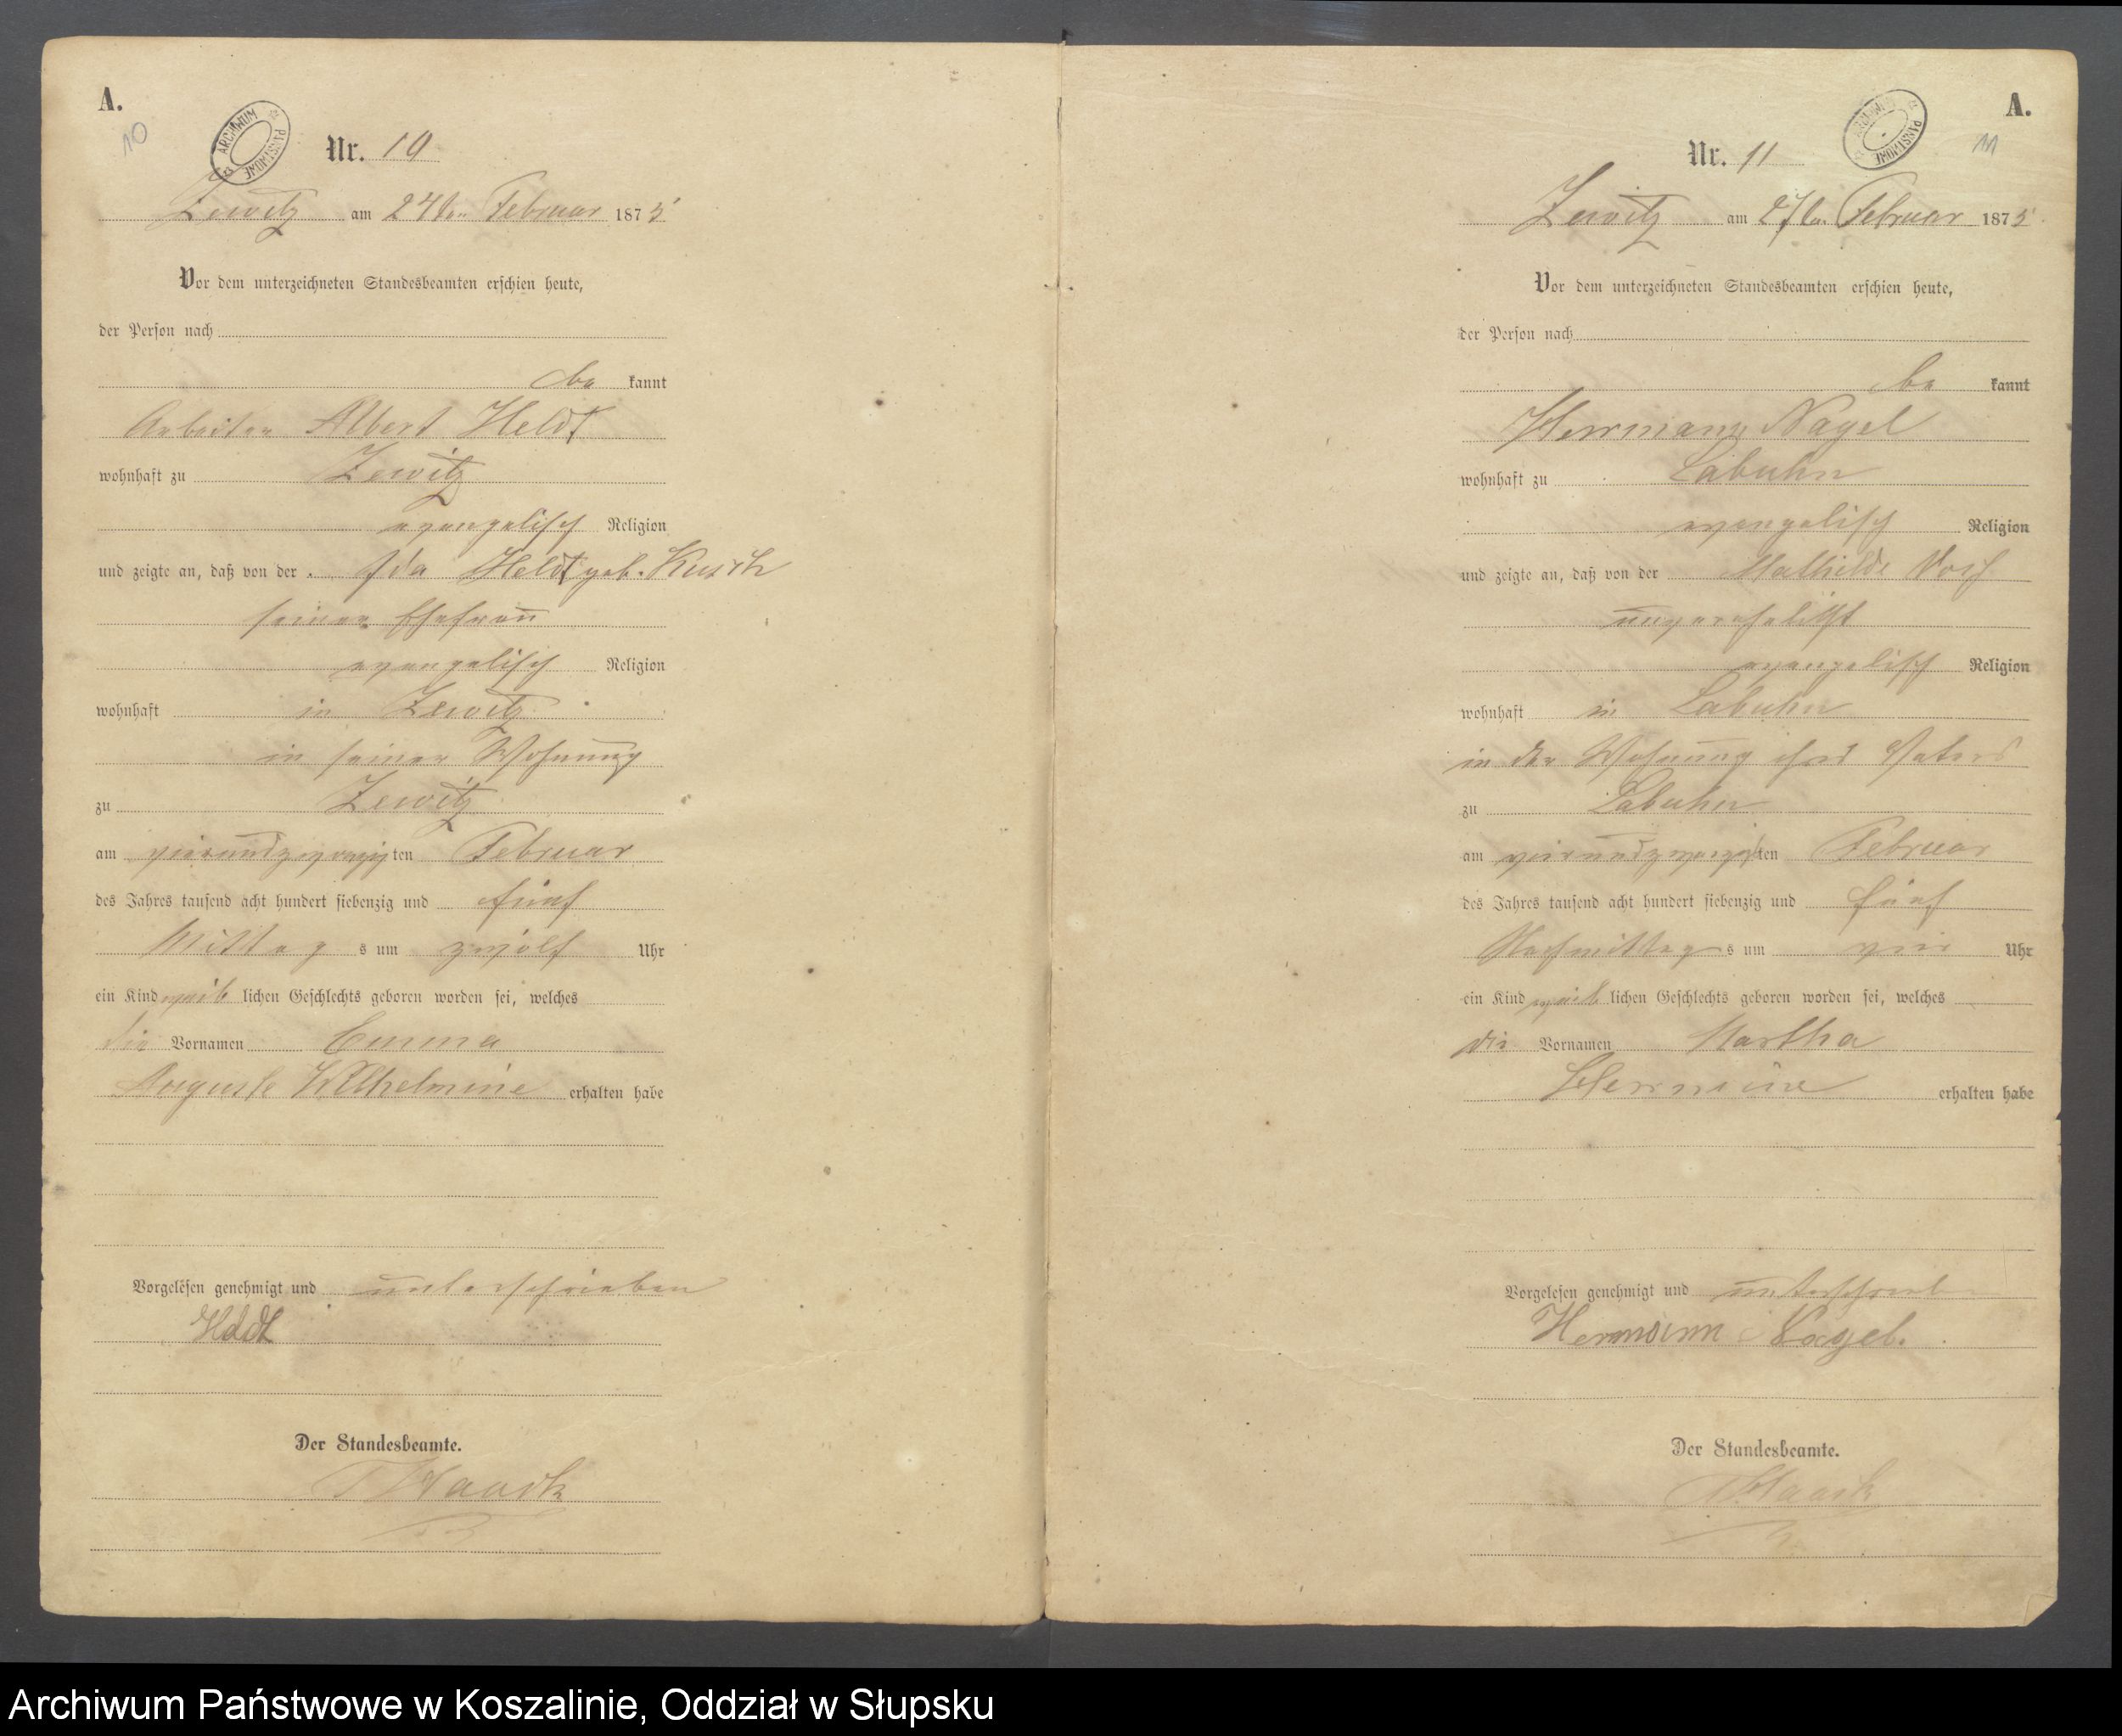 A.
10
ARCHIWUM PAŃSTWOWE
Nr. 10
Zewitz am 24ten Februar 1875
Vor dem unterzeichneten Standesbeamten erschien heute,
der Person nach
be kannt
Arbeiter Albert Heldt
wohnhaft zu Zewitz
evangelisch Religion
und zeigte an, daß von der Ida Heldt geb. Kusch
seiner Ehefrau
evangelisch Religion
wohnhaft in Zewitz
in seiner Wohnung
zu Zewitz
am vierundzwanzigten Februar
des Jahres tausend acht hundert siebenzig und fünf
Mittag s um zwölf Uhr
ein Kind weib lichen Geschlechts geboren worden sei, welches
die Vornamen Emma
Auguste Wilhelmine erhalten habe
Vorgelesen genehmigt und unterschrieben
Heldt
Der Standesbeamte.
Haack
A.
11
ARCHIWUM PAŃSTWOWE
Nr. 11
Zewitz am 27ten Februar 1875
Vor dem unterzeichneten Standesbeamten erschien heute,
der Person nach
be kannt
Herrmann Nagel
wohnhaft zu Labuhn
evangelisch Religion
und zeigte an, daß von der Mathilde
unverehelicht
evangelisch Religion
wohnhaft in Labuhn
in der Wohnung ihres Vaters
zu Labuhn
am vierundzwanzigsten Februar
des Jahres tausend acht hundert siebenzig und fünf
Nachmittag s um vier Uhr
ein Kind weib lichen Geschlechts geboren worden sei, welches
die Vornamen Martha
Hermine erhalten habe
Vorgelesen genehmigt und unterschrieben
Hermann Nagel.
Der Standesbeamte.
Haack
Archiwum Państwowe w Koszalinie, Oddział w Słupsku